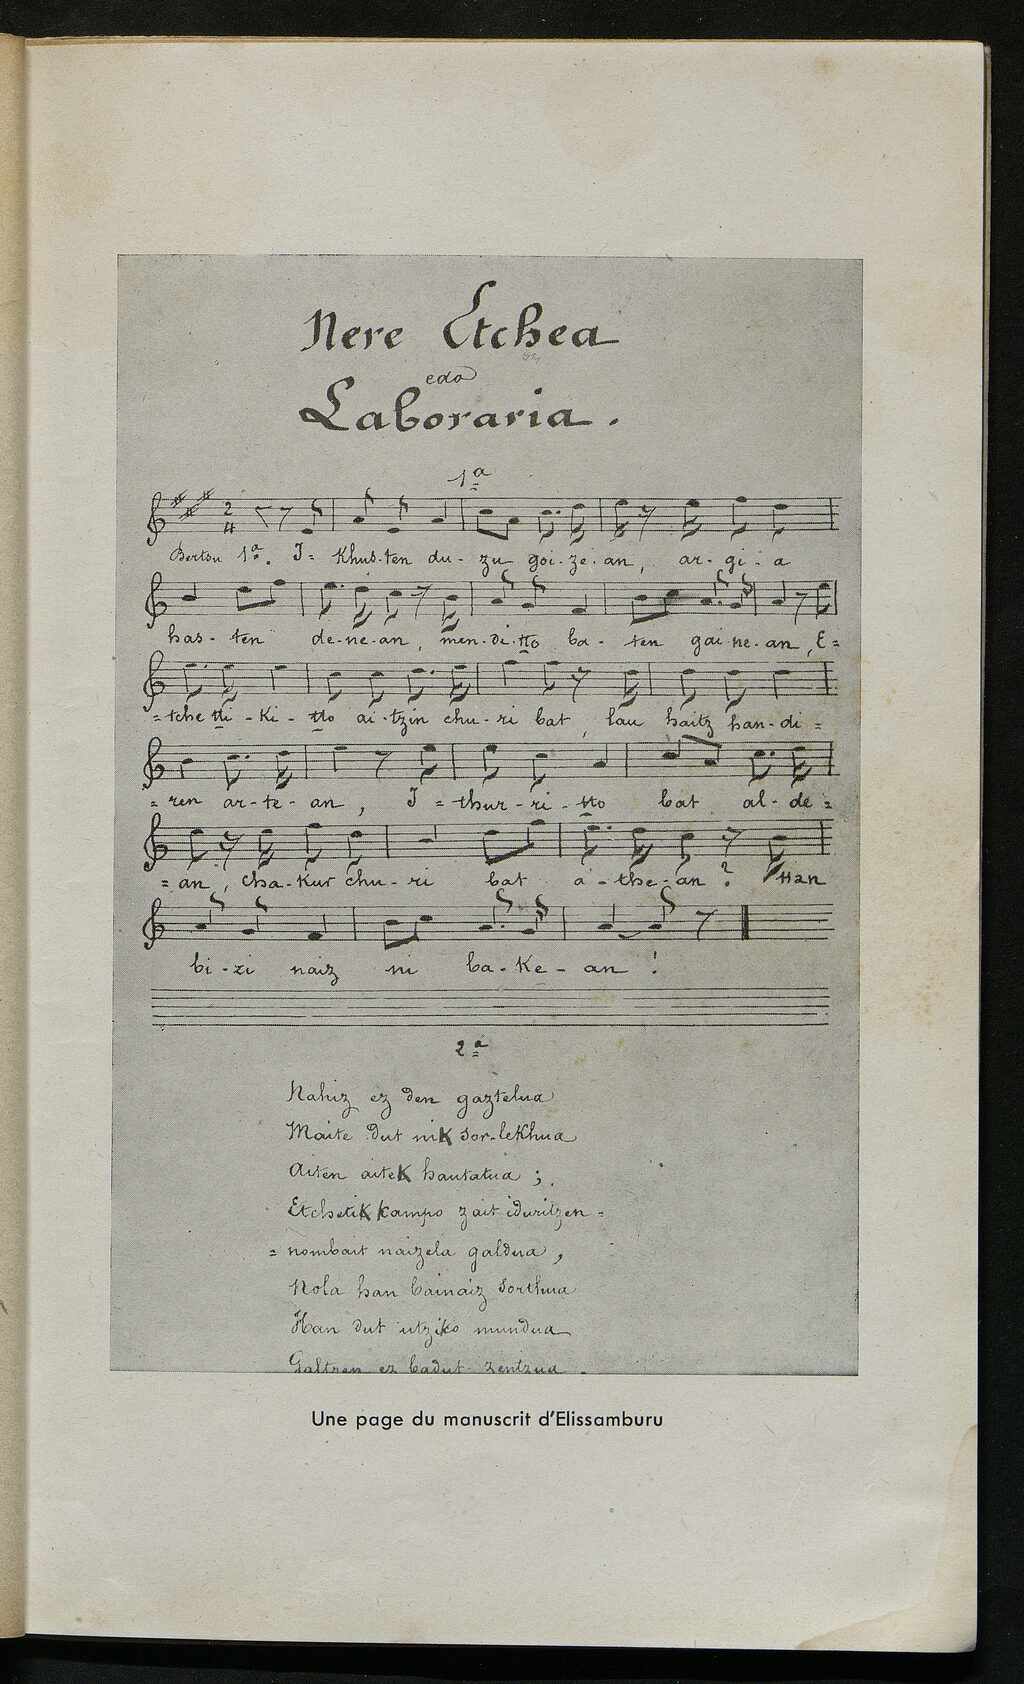 Nere Etchea
edo
Laboraria.
1ª
2/4
Bertsu 1ª. I= khus-ten du-zu goi-ze-an, ar-gi-a
has-ten de-ne-an, men-di-tto ba-ten gai-ne-an, E=
=tche tti-ki-tto ai-tzin chu-ri bat, lau haitz han-di=
=ren ar-te-an, I=thur-ri-tto bat al-de=
=an, cha-kur chu-ri bat a-the-an? Han
bi-zi naiz ni ba-ke-an!
2ª
Nahiz ez den gaztelua
Maite dut nik sor-lekhua
Aiten aitek hautatua;.
Etchetik kampo zait iduritzen=
=nombait naizela galdua,
Nola han bainaiz sorthua
Han dut utziko mundua
Galtzen ez badut zentzua.
Une page du manuscrit d'Elissamburu